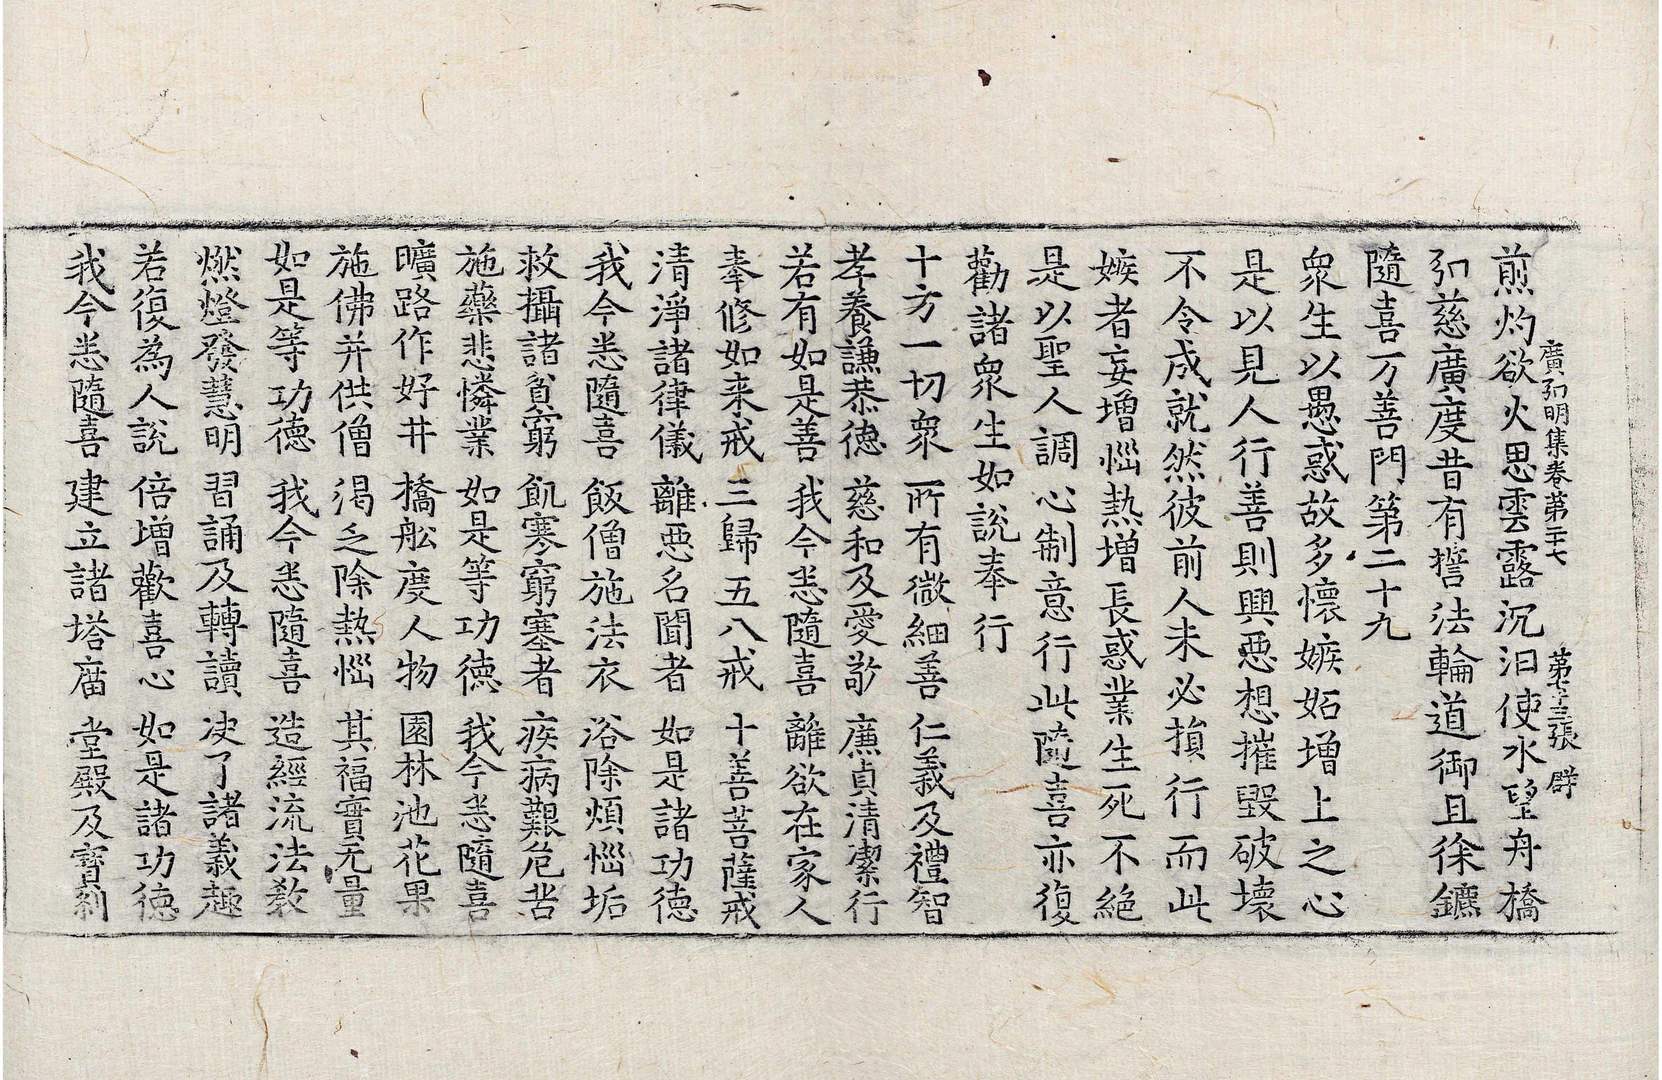 廣弘明集卷第二十七 第十三張 群
煎灼欲火思雲露沉汩使水望舟橋
弘慈廣度昔有誓法輪道御且徐鑣
隨喜万善門第二十九
衆生以愚惑故多懷嫉妬增上之心
是以見人行善則興惡想摧毀破壞
不令成就然彼前人未必損行而此
嫉者妄增惱熱增長惑業生死不絕
是以聖人調心制意行此隨喜亦復
勸諸衆生如說奉行
十方一切衆 所有微細善 仁義及禮智
孝養謙恭德 慈和及愛敬 廉貞清潔行
若有如是善 我今悉隨喜 離欲在家人
奉修如来戒 三歸五八戒 十善菩薩戒
清淨諸律儀 離惡名聞者 如是諸功德
我今悉隨喜 飯僧施法衣 浴除煩惱垢
救攝諸貧窮 飢寒窮塞者 疾病艱危苦
施藥悲憐業 如是等功德 我今悉隨喜
曠路作好井 橋舩度人物 園林池花果
施佛并供僧 渴乏除熱惱 其福實无量
如是等功德 我今悉隨喜 造經流法教
燃燈發慧明 習誦及轉讀 决了諸義趣
若復為人說 倍增歡喜心 如是諸功德
我今悉隨喜 建立諸塔廟 堂殿及寶刹